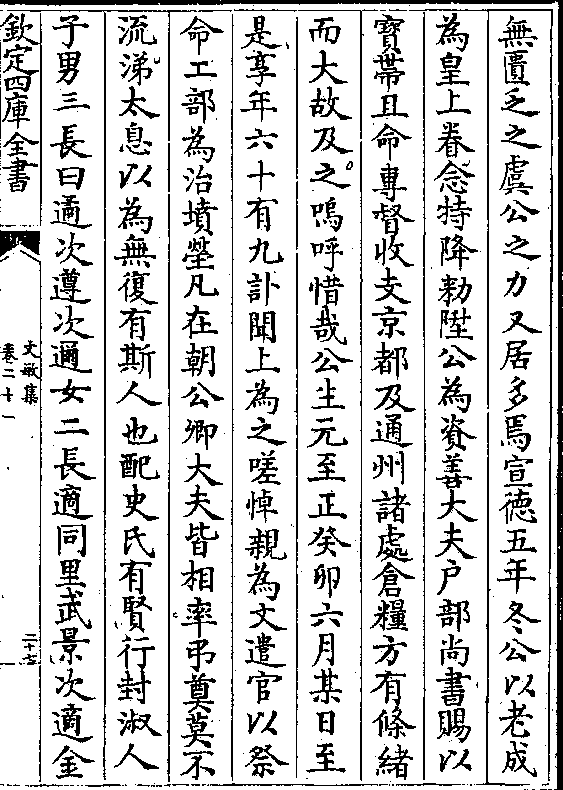 無匱乏之虞公之力又居多焉宣德五年冬公以老成
為皇上眷念特降勅陞公為資善大夫户部尚書賜以
寳帶且命專督收支京都及通州諸處倉糧方有條緒
而大故及之嗚呼惜哉公生元至正癸卯六月某日至
是享年六十有九訃聞上為之嗟悼親為文遣官以祭
命工部為治墳塋凡在朝公卿大夫皆相率弔奠莫不
流涕太息以為無復有斯人也配史氏有賢行封淑人
子男三長曰遹次遵次邇女二長適同里武景次適金
欽定四庫全書
文敏集
卷二十一
二十七